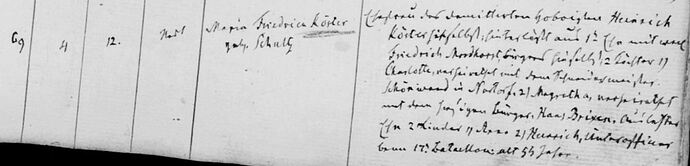 69 4 12. Maria Friedrica Köster
geb. Schultz
Ehefrau des demittirten Hoboisten Heinrich
Köster hieselbst; hinterläßt aus 1r Ehe mit weil.
Friedrich Nordhorst, Bürgers hieselbst: 2 Töchter 1)
Charlotte, verheirathet mit dem Schneidermeister
Schönwand in Nortorf; 2) Magretha, verheirathet
mit dem hiesigen Bürger: Hans Brixen. Aus letzter
Ehe 2 Kinder 1) Anna 2) Heinrich, Unterofficier
beim 17n Bataillon: alt 55 Jahr.